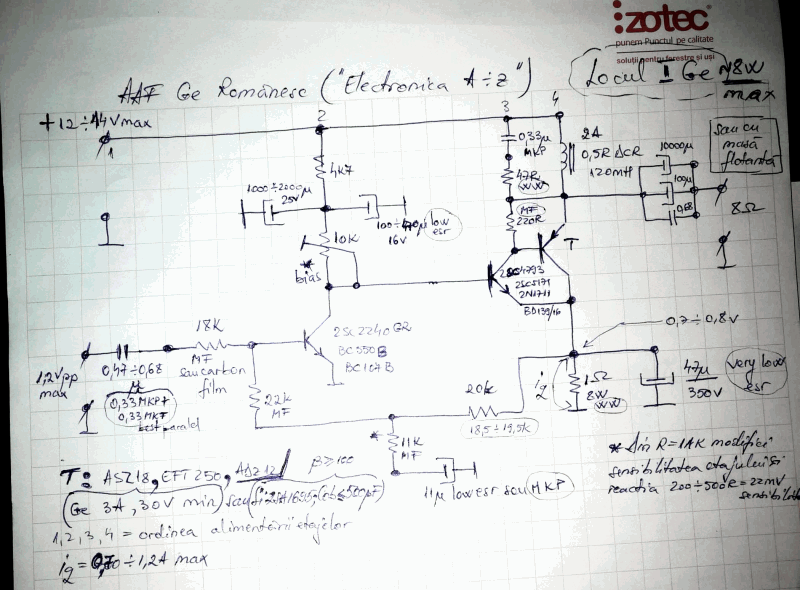 izotec
punem Punctul pe calitate
soluții pentru ferestre și uși
AAF Ge Românesc ("Electronica A÷Z")
Locul I Ge 18W
max
+12÷14Vmax
1
2
3
4
0,33µ
MKP
47R
WW
MF
220R
2A
0,5R DCR
120mH
10000µ
100µ
0,68
sau cu
masă
flotantă
8Ω
4K7
1000÷2000µ
25V
100÷470µ low
16V esr
10K
*
bias
T
2SC4793
2SC5171
2N1711
BD139/16
0,7÷0,8V
18K
MF
sau carbon
film
2SC2240 GR
BC550B
BC107B
1,2Vpp
max
0,47÷0,68
µ
0,33 MKP+
0,33 MKT
best paralel
22K
MF
20K
18,5÷19,5K
ig
1Ω
8W
WW
47µ
350V
Very low
esr
*
11K
MF
11µ low esr sau MKP
* Din R=11K modifici
sensibilitatea etajului și
reacția 200÷500R=22mV
T: ASZ18, EFT250, ADZ12 β≥100
(Ge 3A, 30V min) sau
1,2,3,4 = ordinea alimentării etajelor
ig = 0,70÷1,2A max